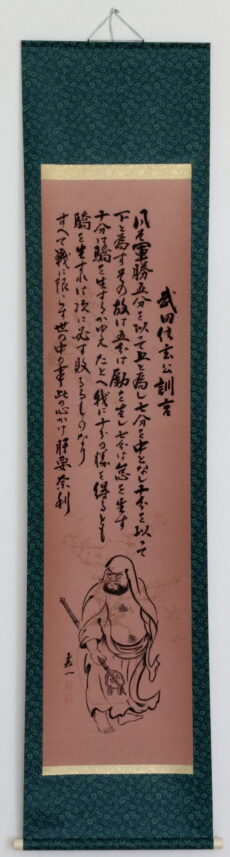 武田信玄公訓言
凡そ軍勝五分を以て上と為し七分を中となし十分を以て
下と為すその故は五分は励を生し七分は怠を生す
十分は驕を生するか故 たとへ戦に十分の勝を得るとも
驕を生すれは次に必す敗るるものなり
すへて戦に限らす世の中の事此の心かけ肝要奈利